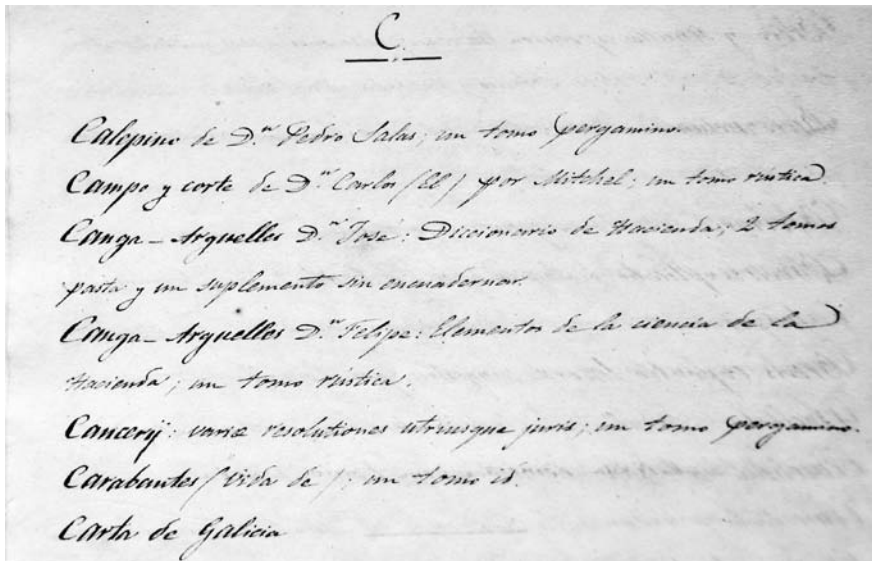 C.
Calepino de D.n Pedro Salas; un tomo pergamino.
Campo y corte de D.n Carlos (El) por Mitchel; un tomo rústica.
Canga-Arguelles D.n José: Diccionario de Hacienda; 2 tomos
pasta y un suplemento sin encuadernar.
Canga-Arguelles D.n Felipe: Elementos de la ciencia de la
Hacienda; un tomo rústica.
Cancerij: variæ resolutiones utriusque juris; un tomo pergamino.
Carabantes (Vida de): un tomo id.
Carta de Galicia